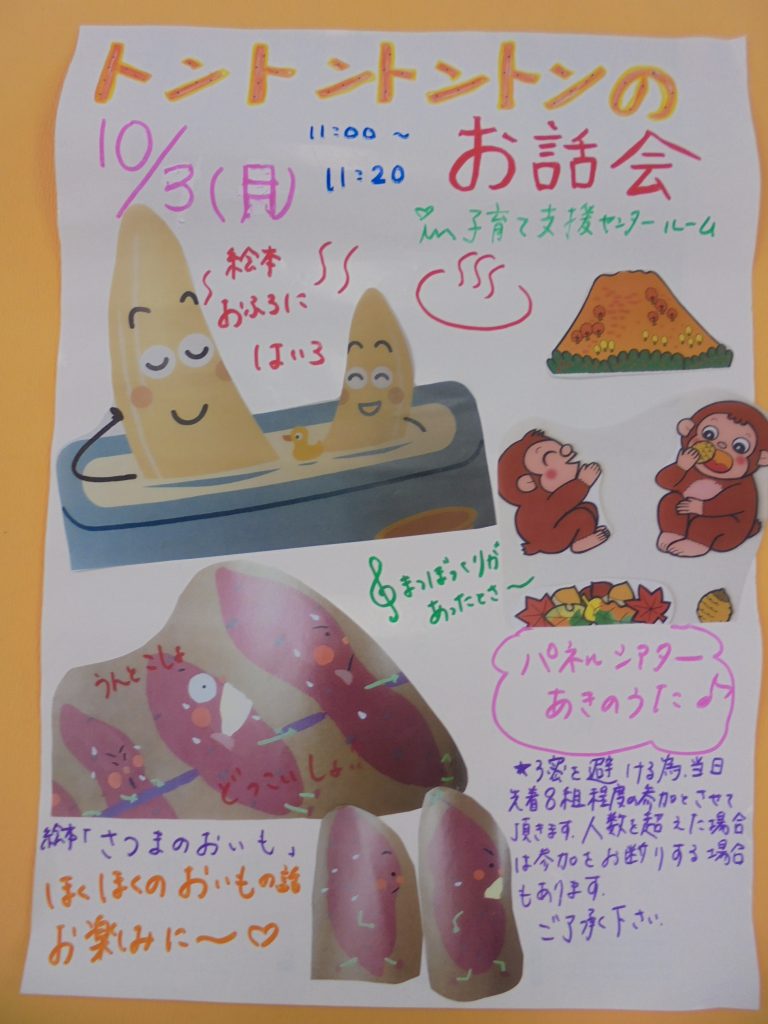 トントントントンの
お話会
10/3(月)
11:00～
11:20
in 子育て支援センタールーム
絵本
おふろに
はいろ
まつぼっくりが
あったとさ～
パネルシアター
あきのうた♪
うんとこしょ
どっこいしょ!!
絵本「さつまのおいも」
ほくほくのおいもの話
お楽しみに～♡
★3密を避ける為、当日
先着8組程度の参加とさせて
頂きます。人数を超えた場合
は参加をお断りする場合
もあります。
ご了承下さい。